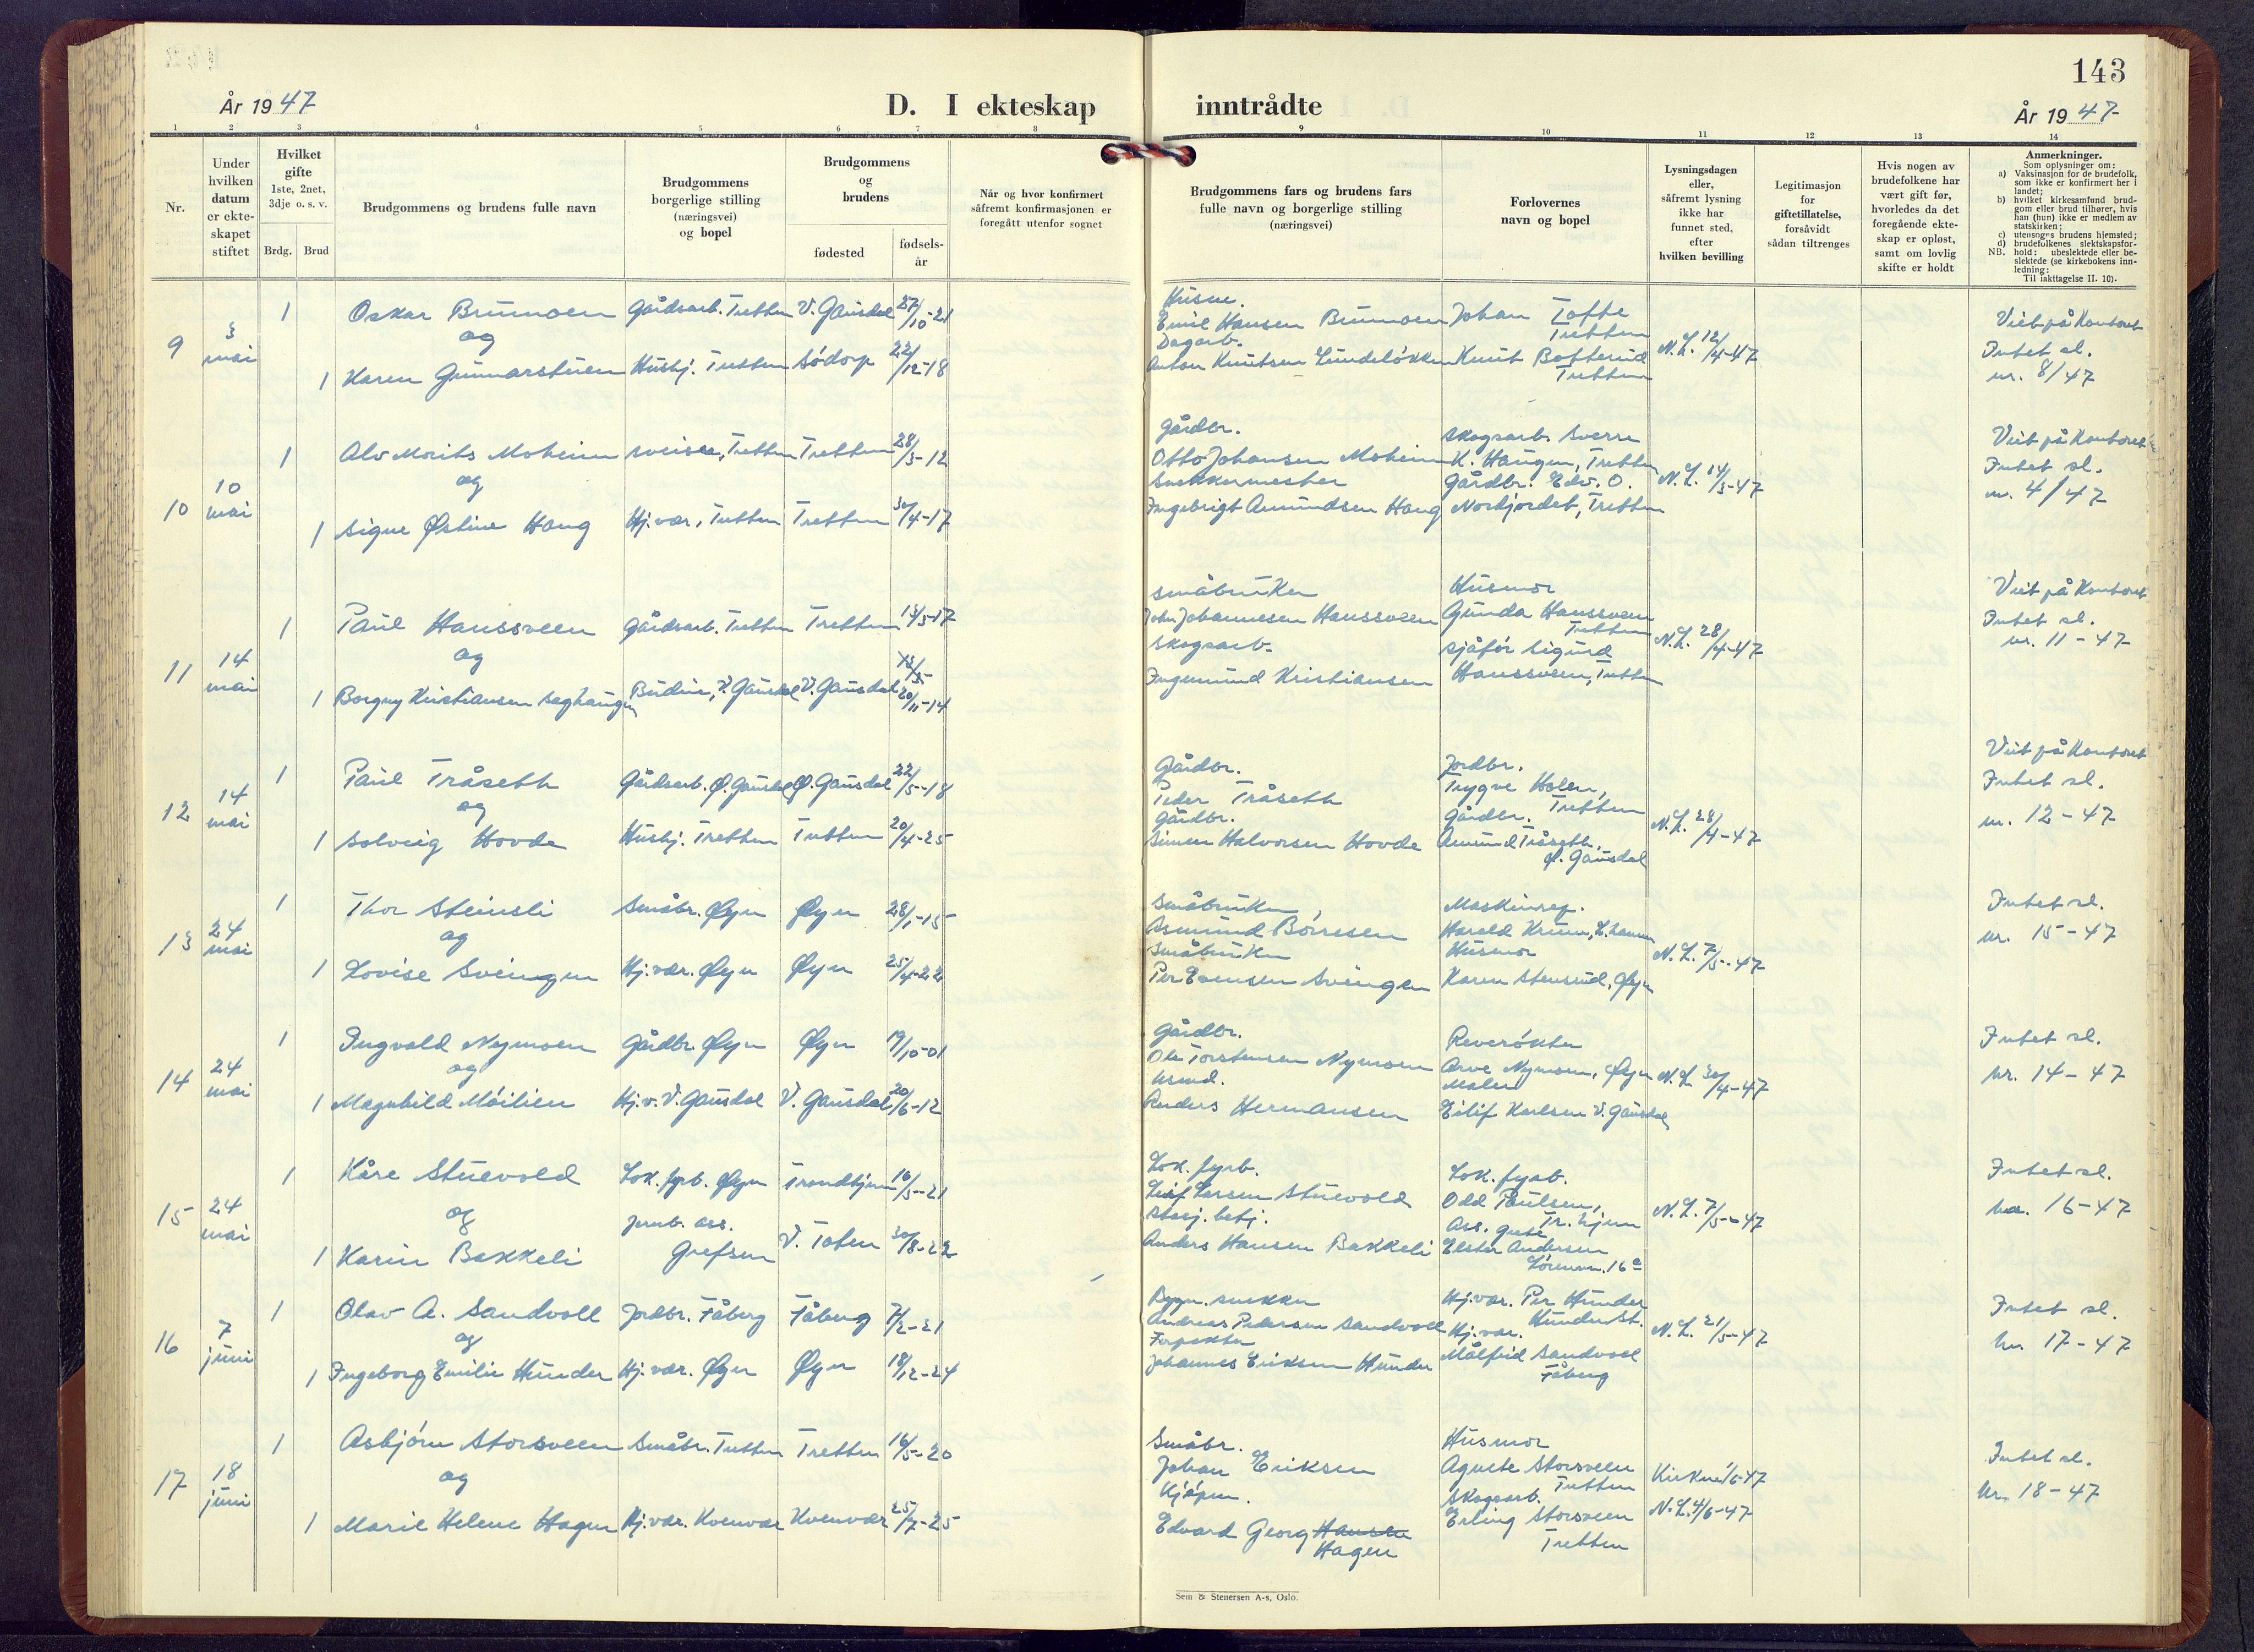 143
År 1947
D. I ekteskap
inntrådte
År 1947
1 2 3 4 5 6 7 8 9 10 11 12 13 14
Nr.
Under hvilken datum er ekte-skapet stiftet
Hvilket gifte
1ste, 2net, 3dje o. s. v.
Brdg. Brud
Brudgommens og brudens fulle navn
Brudgommens borgerlige stilling (næringsvei) og bopel
Brudgommens og brudens
fødested
fødsels-år
Når og hvor konfirmert såfremt konfirmasjonen er foregått utenfor sognet
Brudgommens fars og brudens fars fulle navn og borgerlige stilling (næringsvei)
Forlovernes navn og bopel
Lysningsdagen eller, såfremt lysning ikke har funnet sted, efter hvilken bevilling
Legitimasjon for giftetillatelse, forsåvidt sådan tiltrenges
Hvis nogen av brudefolkene har vært gift før, hvorledes da det foregående ekte-skap er opløst, samt om lovlig skifte er holdt
Anmerkninger.
Som oplysninger om:
a) Vaksinasjon for de brudefolk, som ikke er konfirmert her i landet;
b) hvilket kirkesamfund brud-gom eller brud tilhører, hvis han (hun) ikke er medlem av statskirken;
c) utensogns brudens hjemsted;
d) brudefolkenes slektskapsfor-hold: ubeslektede eller be-slektede (se kirkebokens inn-ledning:
NB. Til iakttagelse II. 10).
9 3 mai
1 Oskar Brunmoen Gårdsarb. Tretten V. Gausdal 27/10-21
og
1 Karen Gunnarstuen Hushj. Tretten Sødorp 22/12-18
Husm.
Emil Hansen Brunmoen
Dagarb.
Anton Knutsen Lundeløkken
Johan Tofte
Tretten
Knut Botterud
Tretten
N.L. 12/4-47
Viet på Kontoret
Intet sl.
nr. 8/47
10 10 mai
1 Alv Morits Moheim sveiser, Tretten Tretten 28/3-12
og
1 Signe Østine Haug Hj.vær., Tretten Tretten 30/4-17
Gårdbr.
Otto Johansen Moheim
Snekkermester
Ingebrigt Amundsen Haug
Skogsarb. Sverre
K. Haugen, Tretten
Gårdbr. Edv. O.
Nordjordet, Tretten
N.L. 14/3-47
Viet på Kontoret
Intet sl.
nr. 4/47
11 14 mai
1 Paul Haussveen Gårdsarb. Tretten Tretten 13/5-17
og
1 Borgny Kristiansen Saghaugen Budeie, V. Gausdal V. Gausdal 20/11-14
Småbruker
John Johannesen Haussveen
Skogsarb.
Ingemund Kristiansen
Husmor
Gunda Haussveen
Tretten
Sjåfør Sigurd
Haussveen, Tretten
N.L. 28/4-47
Viet på Kontoret
Intet sl.
nr. 11-47
12 14 mai
1 Paul Tråseth Gårdsarb. Ø. Gausdal Ø. Gausdal 22/5-18
og
1 Solveig Hovde Hushj. Tretten Tretten 20/4-25
Gårdbr.
Peder Tråseth
Gårdbr.
Simen Halvorsen Hovde
Jordbr.
Trygve Holen,
Tretten
Gårdbr.
Amund Tråseth,
Ø. Gausdal
N.L. 28/4-47
Viet på Kontoret
Intet sl.
nr. 12-47
13 24 mai
1 Thor Steinsli Småbr. Øyer Øyer 28/1-15
og
1 Lovise Sveingen Hj.vær. Øyer Øyer 25/4-22
Småbruker,
Asmund Børresen
Småbruker
Per Evensen Svingen
Maskinrep.
Harald Krum, L.hammer
Husmor
Karen Stensrud, Øyer
N.L. 7/5-47
Intet sl.
nr. 15-47
14 24 mai
1 Ingvald Nymoen Gårdbr. Øyer Øyer 19/10-01
og
1 Magnhild Møilien Hj.v. V. Gausdal V. Gausdal 20/6-12
Gårdbr.
Ole Torstensen Nymoen
Anders Hermansen
Reverøkter
Arve Nymoen, Øyer
Maler
Eilif Karlsen V. Gausdal
N.L. 30/4-47
Intet sl.
nr. 14-47
15 24 mai
1 Kåre Stuevold Lok. fyrb. Øyer Trondhjem 10/5-21
og
1 Karin Bakkeli Jernb. ass. Grefsen V. Toten 30/8-22
Lok. fyrb.
Leif Larsen Stuevold
Stasj. betj.
Anders Hansen Bakkeli
Lok. fyrb.
Odd Paulsen,
Tr. hjem
Ass. Grete
Elster Andersen
Lørenvn. 16 a
N.L. 7/5-47
Intet sl.
nr. 16-47
16 7 juni
1 Olav A. Sandvoll Jordbr. Fåberg Fåberg 7/2-21
og
1 Ingeborg Emilie Hunder Hj.vær. Øyer Øyer 18/12-24
Bygn. snekker
Andreas Pedersen Sandvoll
Forpakter
Johannes Eriksen Hunder
Hj.vær. Per Hunder
Hunder St.
Hj.vær.
Målfrid Sandvoll
Fåberg
N.L. 21/5-47
Intet sl.
nr. 17-47
17 18 juni
1 Asbjørn Storsveen Småbr. Tretten Tretten 16/5-20
og
1 Marie Helene Hagen Hj.vær. Kvenvær Kvenvær 25/7-25
Småbr.
Johan Eriksen
Kjøpm.
Edvard Georg Hansen
Hagen
Husmor
Agnete Storsveen
Tretten
Skogsarb.
Erling Storsveen
Tretten
N.L. 4/6-47
Intet sl.
Nr. 18-47
Sem & Stenersen A-s, Oslo.